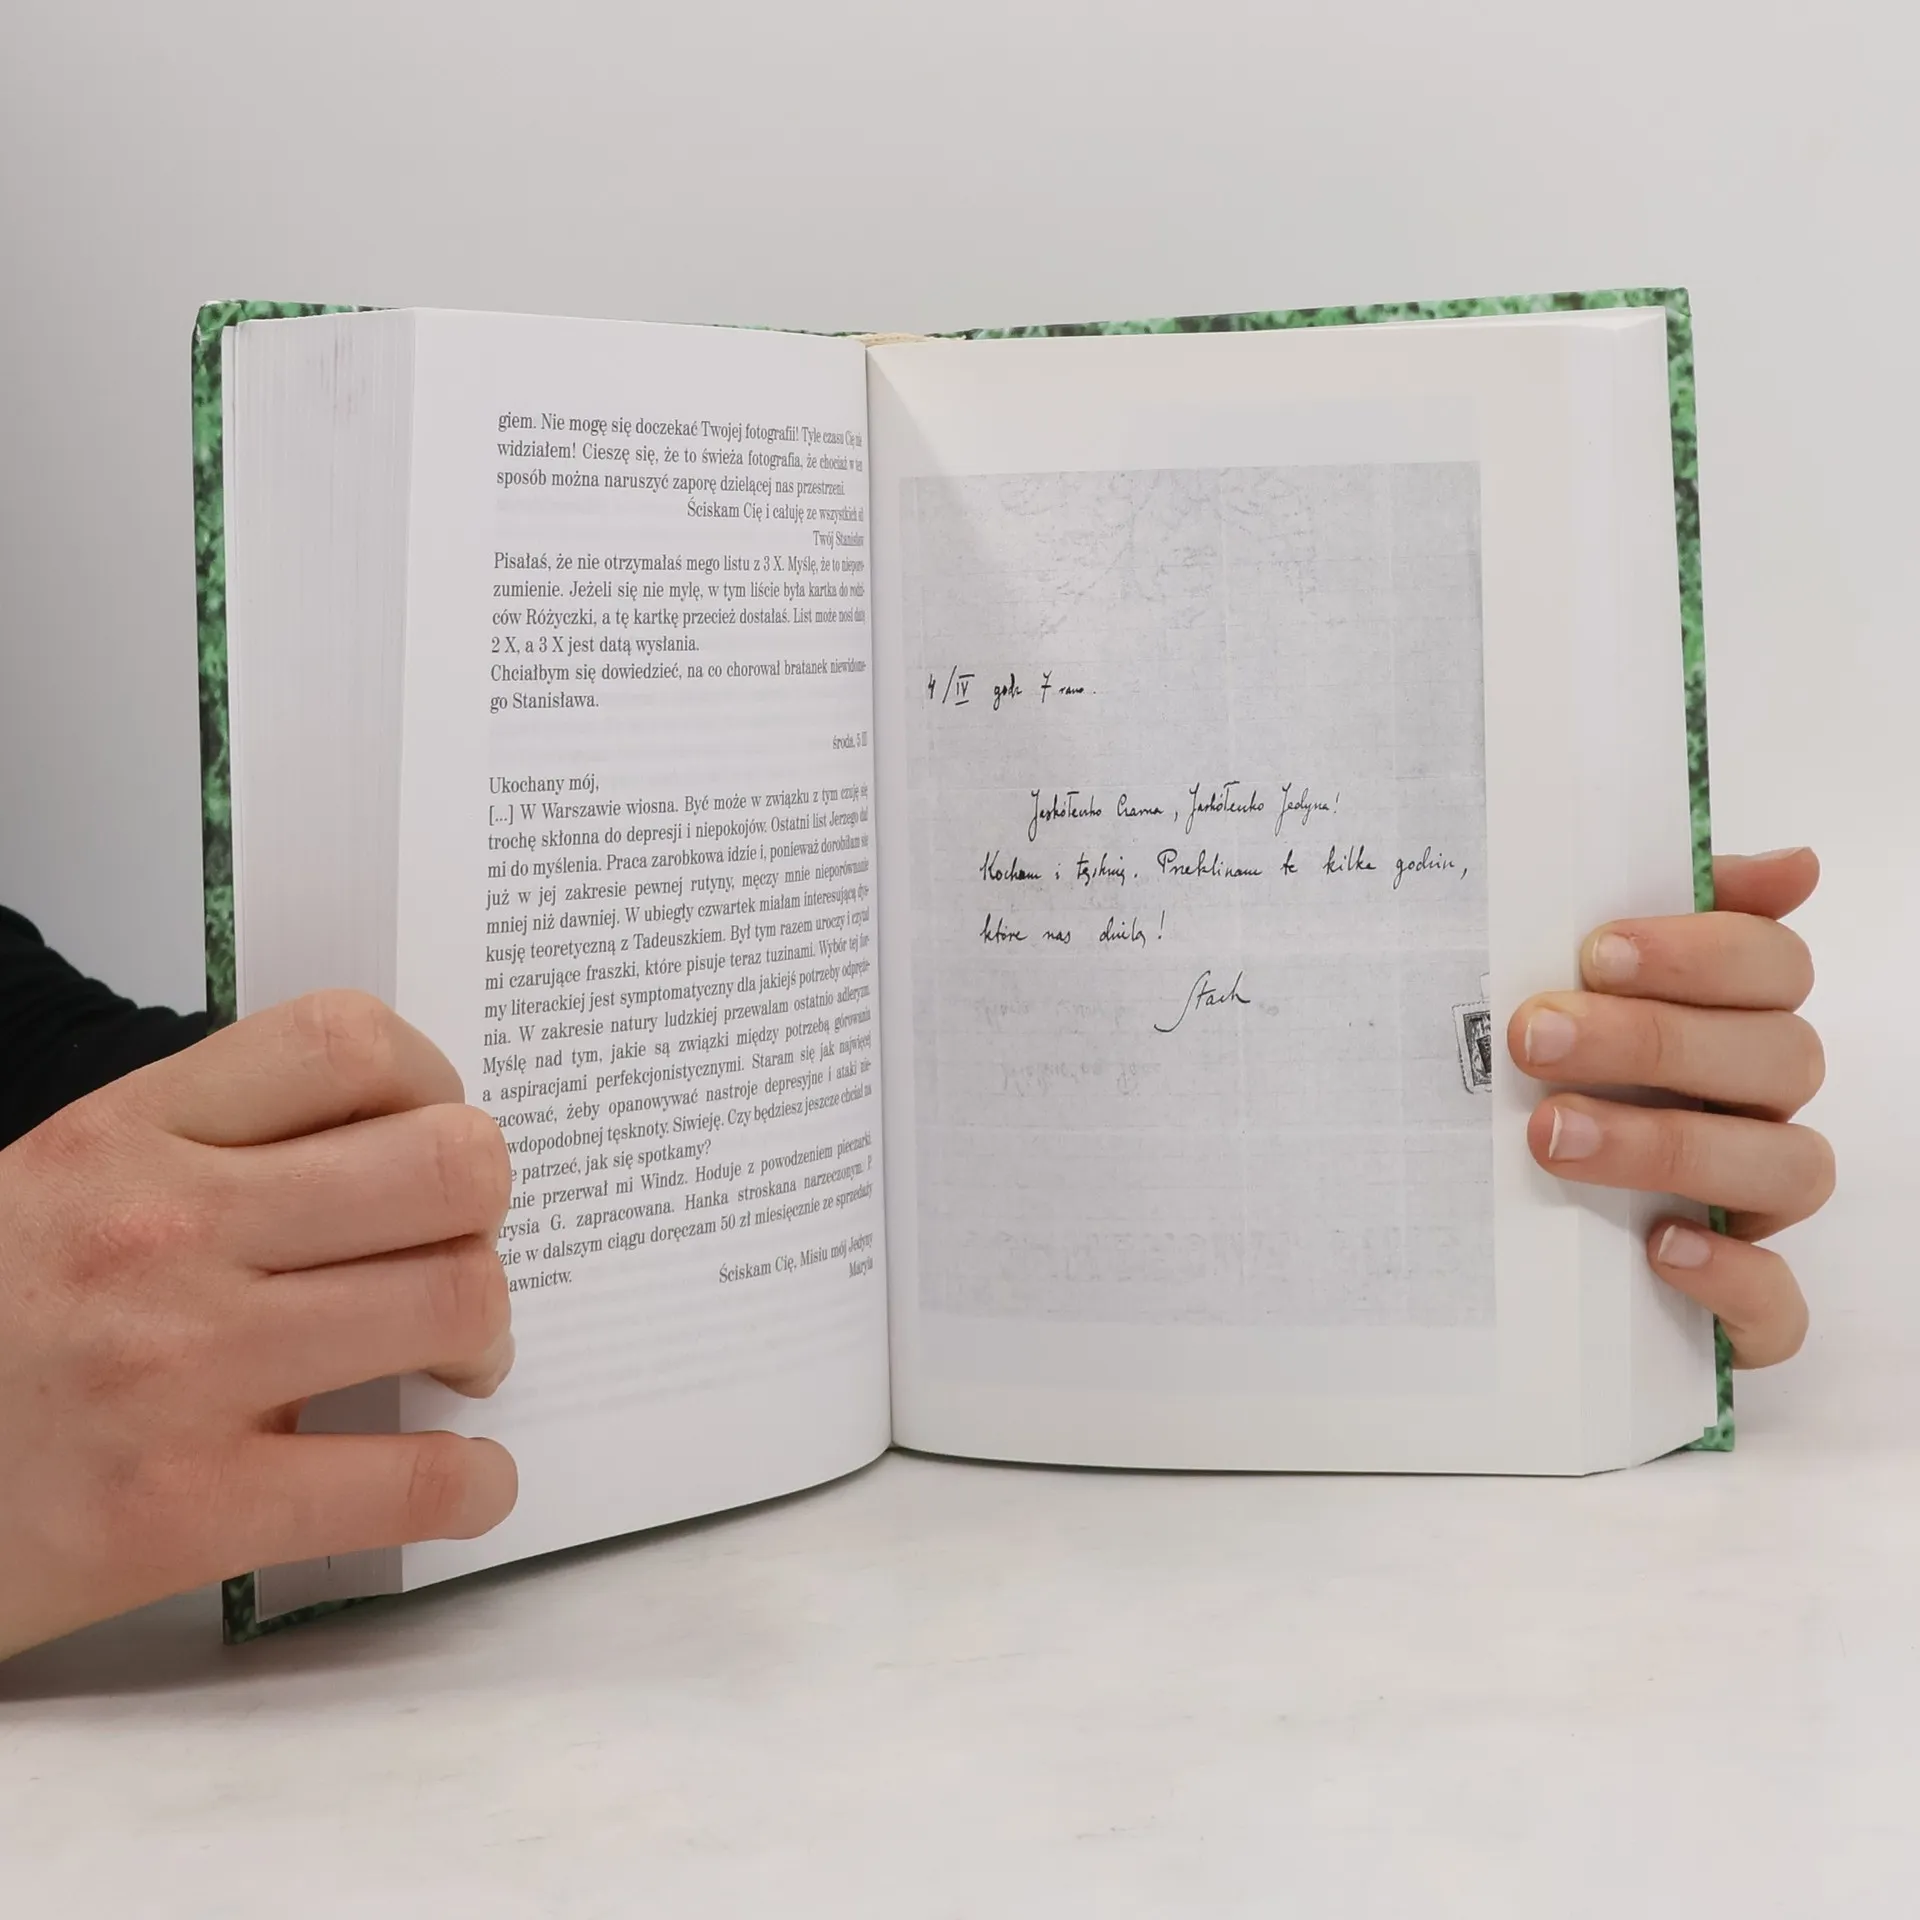 giem. Nie mogę się doczekać Twojej fotografii! Tyle czasu Cię nie
widziałem! Cieszę się, że to świeża fotografia, że chociaż w ten
sposób można naruszyć zaporę dzielącej nas przestrzeni.
Ściskam Cię i całuję ze wszystkich sił
Twój Stanisław
Pisałaś, że nie otrzymałaś mego listu z 3 X. Myślę, że to nieporo-
zumienie. Jeżeli się nie mylę, w tym liście była kartka do rodzi-
ców Różyczki, a tę kartkę przecież dostałaś. List może nosi datę
2 X, a 3 X jest datą wysłania.
Chciałbym się dowiedzieć, na co chorował bratanek niewidome-
go Stanisława.
środa, 5 II
Ukochany mój,
[...] W Warszawie wiosna. Być może w związku z tym czuję się
trochę skłonna do depresji i niepokojów. Ostatni list Jerzego dał
mi do myślenia. Praca zarobkowa idzie i, ponieważ dorobiłam się
już w jej zakresie pewnej rutyny, męczy mnie nieporównanie
mniej niż dawniej. W ubiegły czwartek miałam interesującą dys-
kusję teoretyczną z Tadeuszkiem. Był tym razem uroczy i czytał
mi czarujące fraszki, które pisuje teraz tuzinami. Wybór tej for-
my literackiej jest symptomatyczny dla jakiejś potrzeby odpręże-
nia. W zakresie natury ludzkiej przewalam ostatnio adleryzm.
Myślę nad tym, jakie są związki między potrzebą górowania
a aspiracjami perfekcjonistycznymi. Staram się jak najwięcej
racować, żeby opanowywać nastroje depresyjne i ataki nie-
wdopodobnej tęsknoty. Siwieję. Czy będziesz jeszcze chciał na
e patrzeć, jak się spotkamy?
nie przerwał mi Windz. Hoduje z powodzeniem pieczarki.
rysia G. zapracowana. Hanka stroskana narzeczonym. P
zie w dalszym ciągu doręczam 50 zł miesięcznie ze sprzedaży
awnictw.
Ściskam Cię, Misiu mój Jedyny
Maryla
4/IV godz 7 rano.
Jaskółeczko Czarna, Jaskółeczko Jedyna!
Kocham i tęsknię. Przeklinam te kilka godzin,
które nas dzielą!
Stach